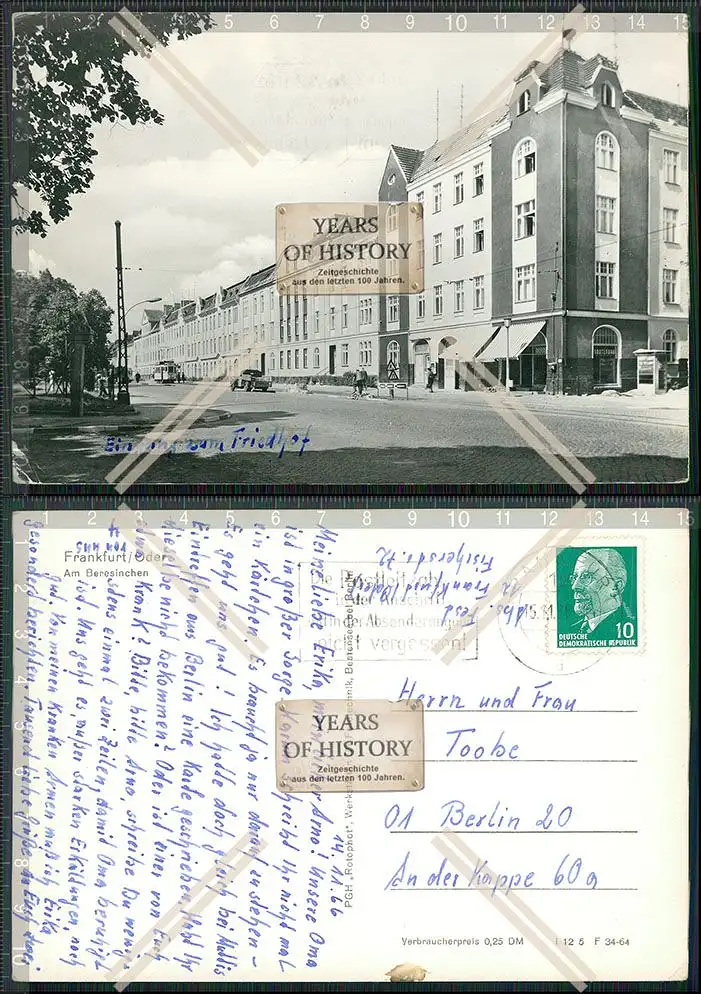 YEARS
OF HISTORY
Zeitgeschichte
aus den letzten 100 Jahren.
zum Friedhof
Frankfurt/Oder
Am Beresinchen
14. 11. 66
Meine liebe Erika, Arno! Unsere Oma
ist in großer Sorge. Warum schreibt Ihr nicht mal
ein Kärtchen. Es braucht ja nur darauf zu stehen –
Es geht uns gut! Ich hatte doch gleich bei Muttis
Eintreffen aus Berlin eine Karte geschrieben. Habt Ihr
dieselbe nicht bekommen? Oder ist einer von Euch
krank? Bitte, bitte Arno, schreibe Du wenig-
stens einmal zwei Zeilen, damit Oma beruhigt
ist. Uns geht es außer starken Erkältungen, noch
gut. Von meinen kranken Armen muß ich Erika
gesondert berichten. Tausend liebe Grüße an Euch
von uns
Abs. Pest
12 Frankfurt/Oder
Fischerstr.
Absenderangabe
nicht vergessen!
DEUTSCHE
DEMOKRATISCHE REPUBLIK
10
PGH „Rotophot",
YEARS
OF HISTORY
Zeitgeschichte
aus den letzten 100 Jahren.
Herrn und Frau
Toobe
01 Berlin 20
An der Kappe 60a
Verbraucherpreis 0,25 DM
I 12 5 F 34-64